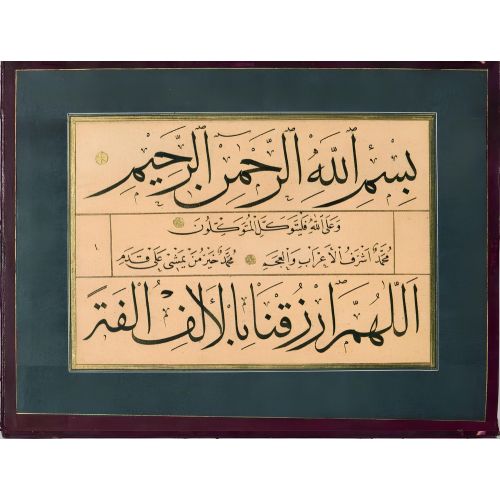 بِسْمِ اللهِ الرَّحْمٰنِ الرَّحِيمِ
وَعَلَى اللهِ فَلْيَتَوَكَّلِ الْمُتَوَكِّلُونَ
مُحَمَّدٌ اَشْرَفُ الْاَعْرَابِ وَالْعَجَمِ مُحَمَّدٌ خَيْرُ مَنْ يَمْشِي عَلَى قَدَمِ
اَللّٰهُمَّ ارْزُقْنَا بِالْاَلِفِ